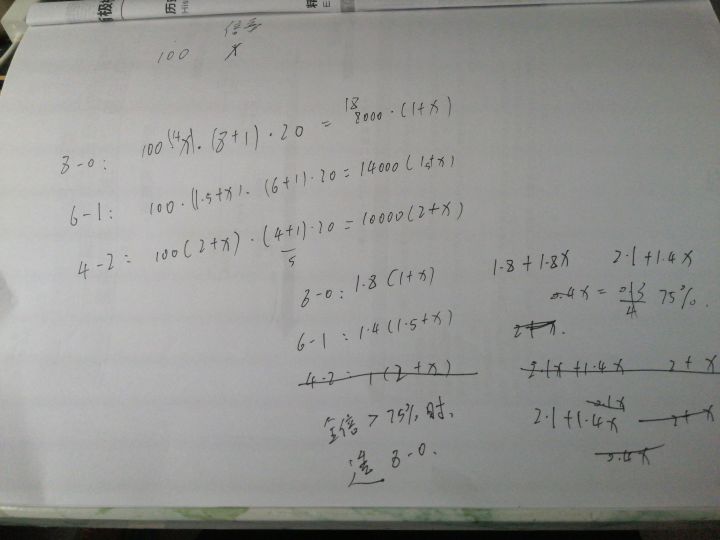 历
倍率
100 x
8-0: 100(1+x)·(8+1)·20 = 18000·(1+x)
6-1: 100·(1.5+x)·(6+1)·20 = 14000(1.5+x)
4-2: 100(2+x)·(4+1)·20 = 10000(2+x)
5
8-0: 1.8(1+x)
1.8+1.8x 2.1+1.4x
0.4x = 0.3/4 75%.
6-1: 1.4(1.5+x)
2+x.
4-2: 1(2+x)
2.1x+1.4x 2+x
2.1x
2.1+1.4x 2+x
0.4x
全倍>75%时,
选 8-0.